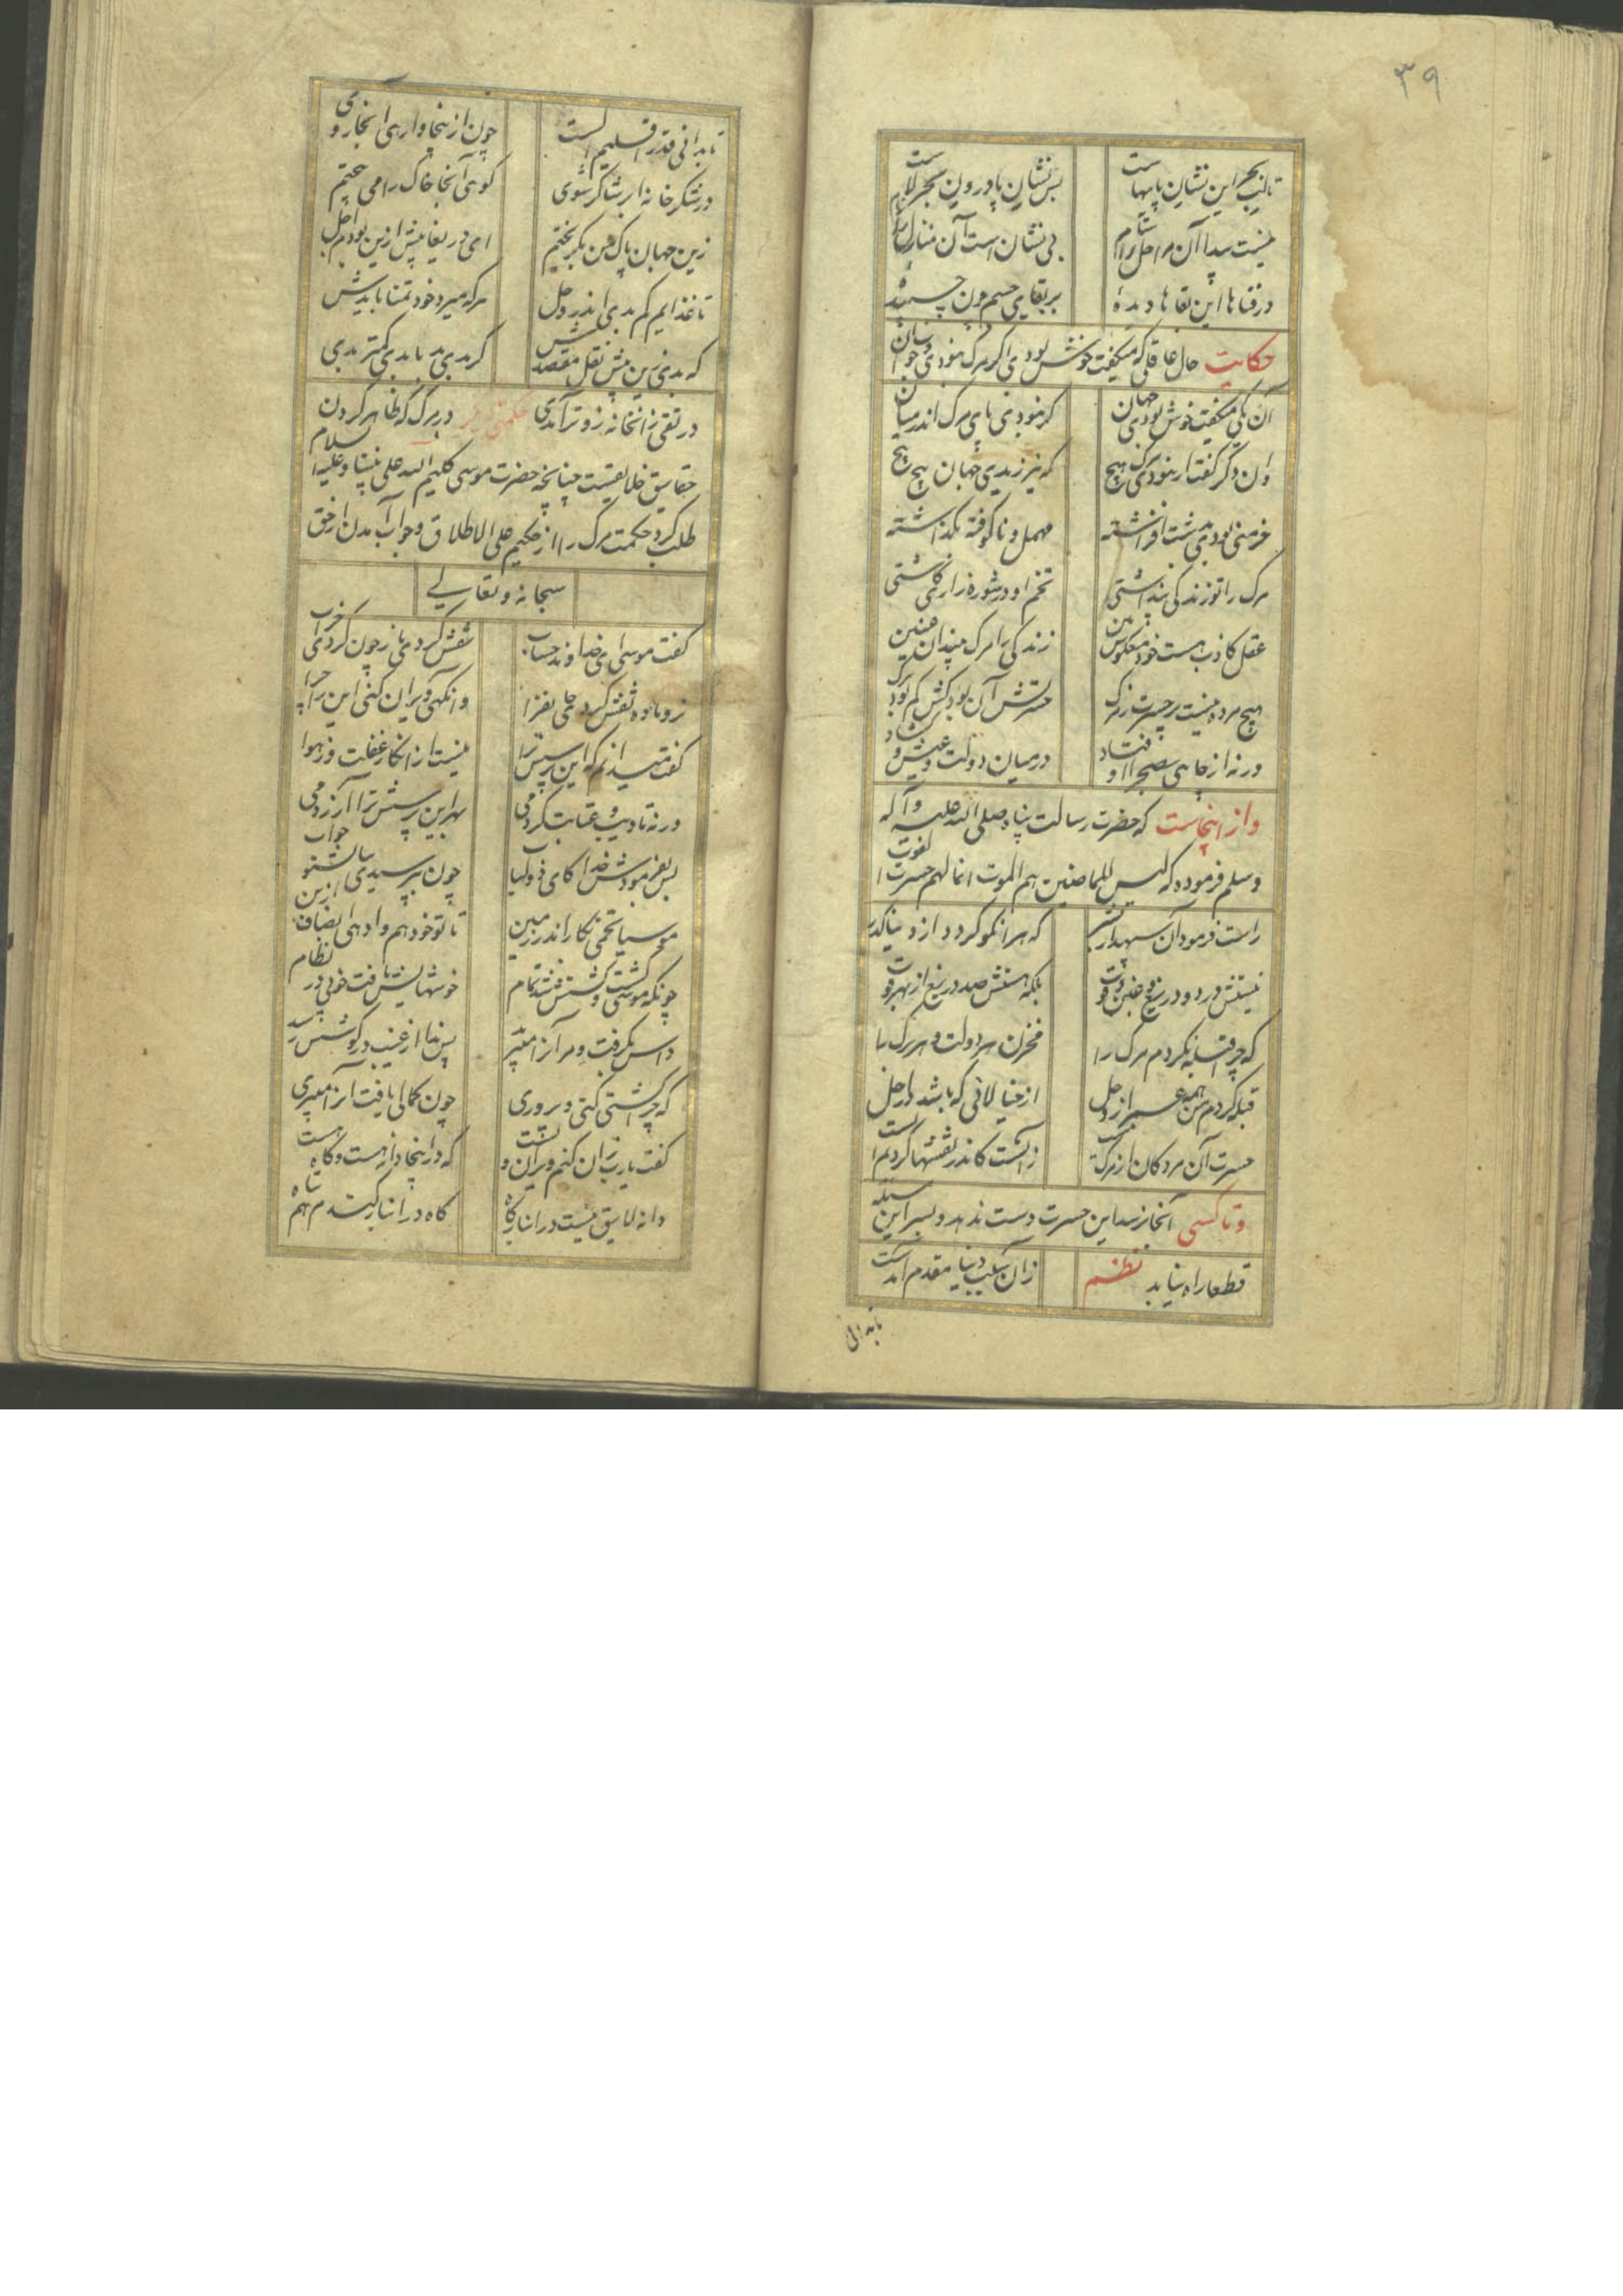 ۳۹
تا لب بحر این نشان پایهاست بس نشان پا درون بحر لاست
نیست پیدا آن مراحل را سنام بی نشان است آن منازل را
در فناها این بقاها دیدهٔ بر بقای جسم چون چسبیدهٔ
حکایت حال عاقلی که میگفت خوش بودی اگر مرگ نبودی و جواب آن
آن یکی میگفت خوش بودی جهان گر نبودی پای مرگ اندر میان
وان دگر گفت ار نبودی مرگ هیچ که نیرزیدی جهان پیچ پیچ
خرمنی بودی بدشت افراشته مهمل و ناکوفته بگذاشته
مرگ را تو زندگی پنداشتی تخم را در شوره زاری کاشتی
عقل کاذب هست خود معکوس بین زندگی را مرگ بیند ای
هیچ مرده نیست پر حسرت ز مرگ حسرتش آن بود کش کم بود برگ
ورنه از چاهی بصحرا اوفتاد در میان دولت و عیش و گشاد
واز اینجاست که حضرت رسالت پناه صلی الله علیه وآله
وسلم فرموده که لیس للماضین هم الموت انما لهم حسرت الفوت
راست فرمود آن سپهدار بشر که هر آنکو کرد از دنیا گذر
نیستش درد و دریغ و غبن موت بلکه هستش صد دریغ از بهر فوت
که چرا قبله نکردم مرگ را مخزن هر دولت و هر برگ را
قبله کردم من همه عمر از حول از خیالاتی که
حسرت آن مردگان از مرگ نیست زآنست کاندر نقشها کردیم ایست
وتا کسی آنجا نرسد این حسرت دست ندهد و بسر این مسئله
قطعا راه نیابد نظم زان سبب دنیا مقدم آمدست
تا بدانی
تا بدانی قدر اقلیم الست چون از اینجا وارهی آنجا روی
در شکرخانه ابد شاکر شوی گوهی آنجا خاک را می بیختم
زین جهان پاک من بگریختم ای دریغا پیش ازین بودم اجل
تا عذابم کم بدی اندر وحل هر که میرد خود تمنا بایدش
که بدی زین پیش نقل مقصدش گر بدی بد تا بدی کمتر بدی
ور تقی زآن خانه زوتر آمدی حکمتی در مرگ که ظاهر کردن
حقایق خلایقست چنانچه حضرت موسی کلیم الله علی نبینا وعلیه السلام
طلب کرد حکمت مرگ را از حکیم علی الاطلاق و جواب آمدن از حق
سبحانه وتعالی
گفت موسی ای خداوند حساب نقش کردی باز چون کردی خراب
نر و ماده نقش کردی جانفزا وانگهی ویران کنی این را چرا
گفت میدانم که این پرسش ترا نیست از انکار و غفلت وز هوا
ورنه تادیب و عتابت کردمی بهر این پرسش ترا آزردمی
پس بفرمودش خدا کای ذو لباب چون بپرسیدی بیا بشنو جواب
موسیا تخمی بکار اندر زمین تا تو خود هم وادهی انصاف ازین
چونکه موسی کشت و کشتش شد تمام خوشهایش یافت خوبی در نظام
داس بگرفت و مر آنرا می‌برید پس ندا از غیب در گوشش رسید
که چرا کشتی کنی و پروری چون کمالی یافت آنرا می‌بری
گفت یارب زان کنم ویران و پست که در اینجا دانه هست و کاه هست
دانه لایق نیست در انبار کاه کاه در انبار گندم هم تباه